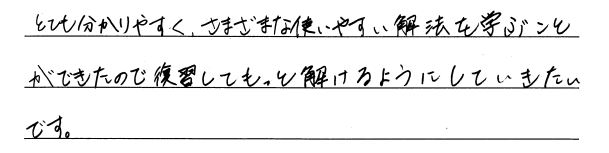 とても分かりやすく、さまざまな使いやすい解法を学ぶこと
ができたので復習してもっと解けるようにしていきたい
です。